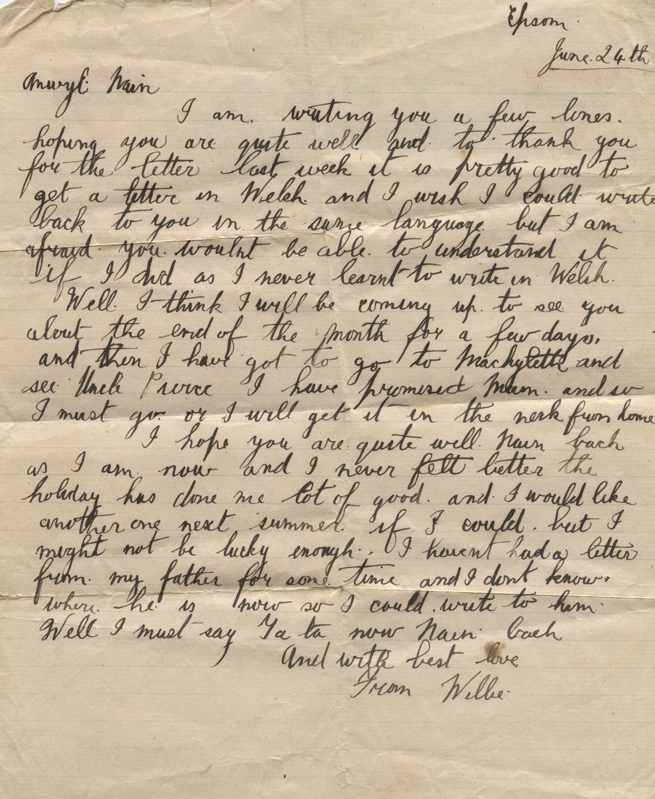 Epsom.
June. 24th
Anwyl Nain
I am. writing you a few lones.
hoping you are quite well and to thank you
for the letter last week it is pretty good to
get a letter in Welsh and I wish I could write
back to you in the same language but I am
afraid you woulnt be able to understand it
if I did as I never learnt to write in Welsh.
Well I think I will be coming up to see you
about the end of the month for a few days,
and then I have got to go to Machylette and
see Uncle Pierce I have promised Mum. and so
I must go or I will get it in the neck from home
I hope you are quite well Nain bach
as I am now and I never felt better the
holiday has done me lot of good. and I would like
another one next summer if I could. but I
might not be lucky enough. I havent had a letter
from my father for some time and I dont know.
where he is now so I could write to him.
Well I must say Ta ta now Nain bach
And with best love
From Willie.